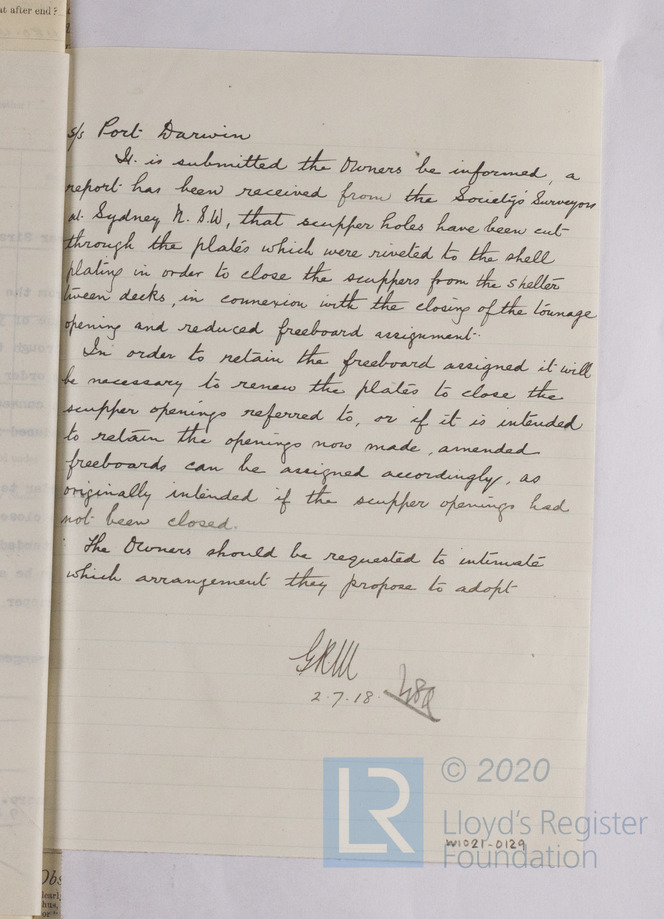 at after end?
s/s Port Darwin
It is submitted the Owners be informed, a
report has been received from the Society's Surveyors
at Sydney N.S.W, that scupper holes have been cut
through the plates which were riveted to the shell
plating in order to close the scuppers from the shelter
tween decks, in connexion with the closing of the tonnage
opening and reduced freeboard assignment.
In order to retain the freeboard assigned it will
be necessary to renew the plates to close the
scupper openings referred to, or if it is intended
to retain the openings now made, amended
freeboards can be assigned accordingly, as
originally intended if the scupper openings had
not been closed.
The Owners should be requested to intimate
which arrangement they propose to adopt
2.7.18
LR
© 2020
Lloyd's Register
Foundation
W1021-0129
Obs
hus,
or "